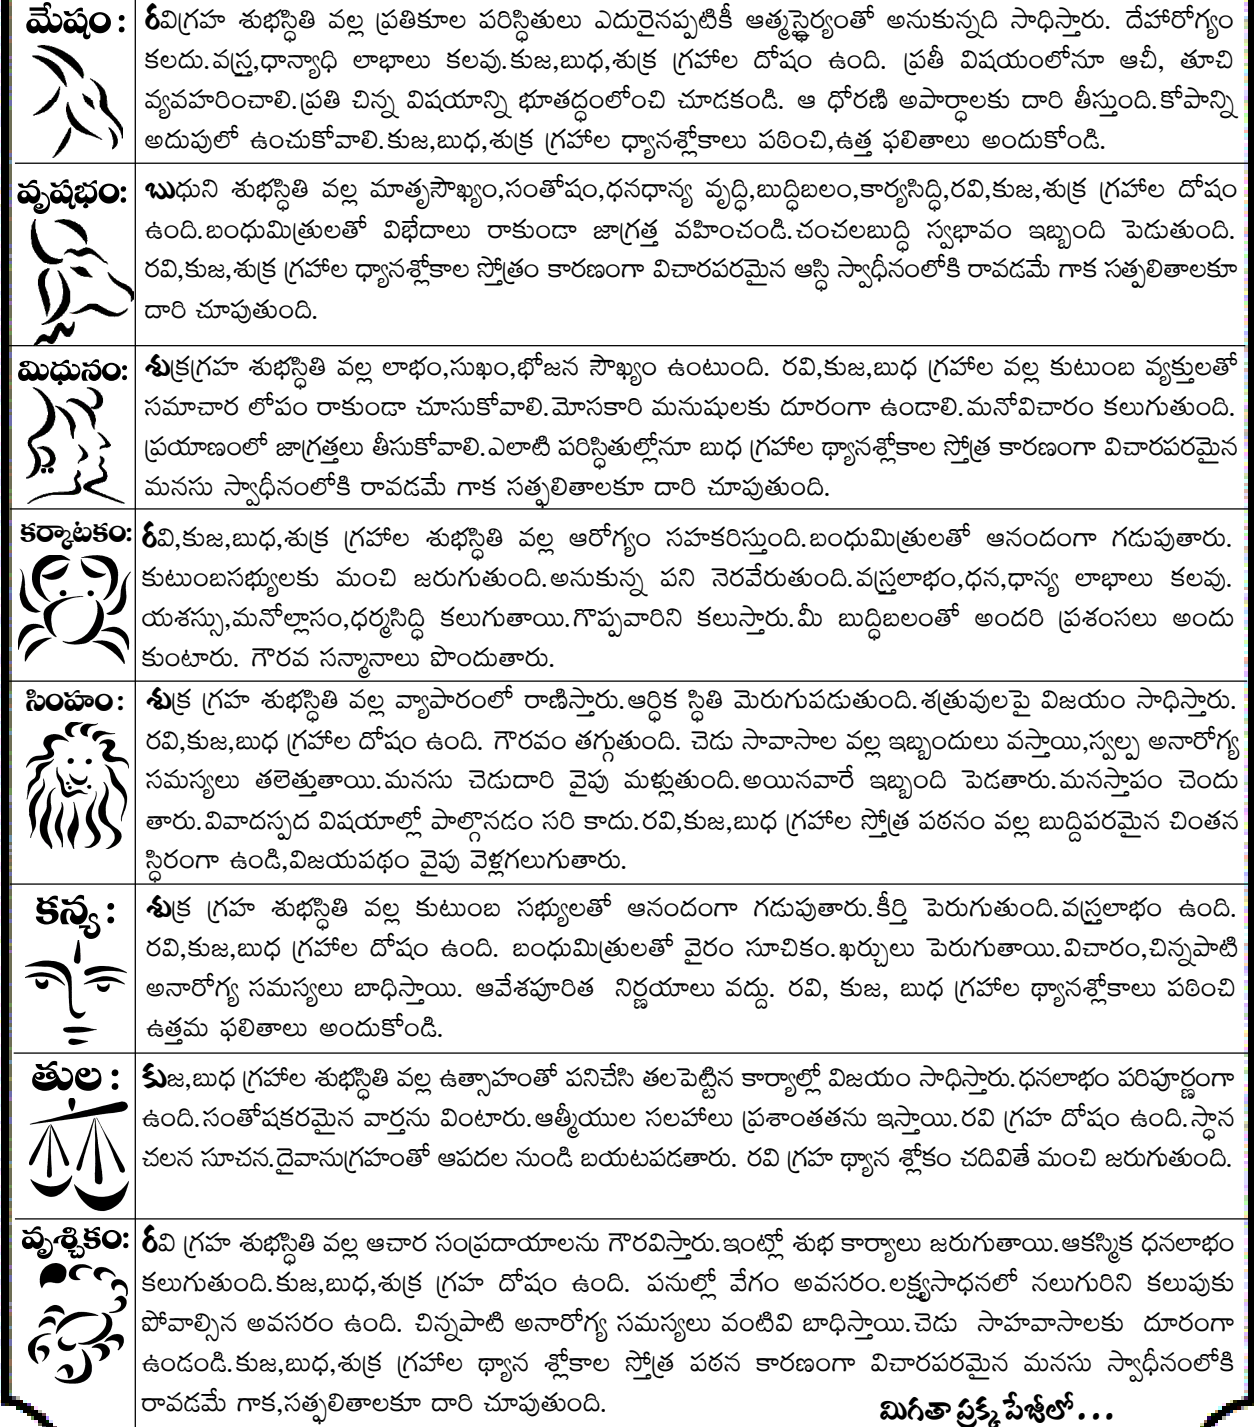 మేషం:
రవిగ్రహ శుభస్థితి వల్ల ప్రతికూల పరిస్థితులు ఎదురైనప్పటికీ ఆత్మస్థైర్యంతో అనుకున్నది సాధిస్తారు. దేహారోగ్యం
కలదు.వస్త్ర,ధాన్యాధి లాభాలు కలవు.కుజ,బుధ,శుక్ర గ్రహాల దోషం ఉంది. ప్రతీ విషయంలోనూ ఆచీ, తూచి
వ్యవహరించాలి.ప్రతి చిన్న విషయాన్ని భూతద్దంలోంచి చూడకండి. ఆ ధోరణి అపార్ధాలకు దారి తీస్తుంది.కోపాన్ని
అదుపులో ఉంచుకోవాలి.కుజ,బుధ,శుక్ర గ్రహాల ధ్యానశ్లోకాలు పఠించి,ఉత్త ఫలితాలు అందుకోండి.
వృషభం:
బుధుని శుభస్థితి వల్ల మాతృసౌఖ్యం,సంతోషం,ధనధాన్య వృద్ధి,బుద్ధిబలం,కార్యసిద్ధి,రవి,కుజ,శుక్ర గ్రహాల దోషం
ఉంది.బంధుమిత్రులతో విభేదాలు రాకుండా జాగ్రత్త వహించండి.చంచలబుద్ధి స్వభావం ఇబ్బంది పెడుతుంది.
రవి,కుజ,శుక్ర గ్రహాల ధ్యానశ్లోకాల స్తోత్రం కారణంగా విచారపరమైన ఆస్థి స్వాధీనంలోకి రావడమే గాక సత్ఫలితాలకూ
దారి చూపుతుంది.
మిధునం:
శుక్రగ్రహ శుభస్థితి వల్ల లాభం,సుఖం,భోజన సౌఖ్యం ఉంటుంది. రవి,కుజ,బుధ గ్రహాల వల్ల కుటుంబ వ్యక్తులతో
సమాచార లోపం రాకుండా చూసుకోవాలి.మోసకారి మనుషులకు దూరంగా ఉండాలి.మనోవిచారం కలుగుతుంది.
ప్రయాణంలో జాగ్రత్తలు తీసుకోవాలి.ఎలాటి పరిస్థితుల్లోనూ బుధ గ్రహాల థ్యానశ్లోకాల స్తోత్ర కారణంగా విచారపరమైన
మనసు స్వాధీనంలోకి రావడమే గాక సత్ఫలితాలకూ దారి చూపుతుంది.
కర్కాటకం:
రవి,కుజ,బుధ,శుక్ర గ్రహాల శుభస్థితి వల్ల ఆరోగ్యం సహకరిస్తుంది.బంధుమిత్రులతో ఆనందంగా గడుపుతారు.
కుటుంబసభ్యులకు మంచి జరుగుతుంది.అనుకున్న పని నెరవేరుతుంది.వస్త్రలాభం,ధన,ధాన్య లాభాలు కలవు.
యశస్సు,మనోల్లాసం,ధర్మసిద్ధి కలుగుతాయి.గొప్పవారిని కలుస్తారు.మీ బుద్ధిబలంతో అందరి ప్రశంసలు అందు
కుంటారు. గౌరవ సన్మానాలు పొందుతారు.
సింహం:
శుక్ర గ్రహ శుభస్థితి వల్ల వ్యాపారంలో రాణిస్తారు.ఆర్ధిక స్థితి మెరుగుపడుతుంది.శత్రువులపై విజయం సాధిస్తారు.
రవి,కుజ,బుధ గ్రహాల దోషం ఉంది. గౌరవం తగ్గుతుంది. చెడు సావాసాల వల్ల ఇబ్బందులు వస్తాయి,స్వల్ప అనారోగ్య
సమస్యలు తలెత్తుతాయి.మనసు చెడుదారి వైపు మళ్లుతుంది.అయినవారే ఇబ్బంది పెడతారు.మనస్తాపం చెందు
తారు.వివాదస్పద విషయాల్లో పాల్గొనడం సరి కాదు.రవి,కుజ,బుధ గ్రహాల స్తోత్ర పఠనం వల్ల బుద్దిపరమైన చింతన
స్థిరంగా ఉండి,విజయపథం వైపు వెళ్లగలుగుతారు.
కన్య:
శుక్ర గ్రహ శుభస్థితి వల్ల కుటుంబ సభ్యులతో ఆనందంగా గడుపుతారు.కీర్తి పెరుగుతుంది.వస్త్రలాభం ఉంది.
రవి,కుజ,బుధ గ్రహాల దోషం ఉంది. బంధుమిత్రులతో వైరం సూచికం.ఖర్చులు పెరుగుతాయి.విచారం,చిన్నపాటి
అనారోగ్య సమస్యలు బాధిస్తాయి. ఆవేశపూరిత నిర్ణయాలు వద్దు. రవి, కుజ, బుధ గ్రహాల థ్యానశ్లోకాలు పఠించి
ఉత్తమ ఫలితాలు అందుకోండి.
తుల:
కుజ,బుధ గ్రహాల శుభస్థితి వల్ల ఉత్సాహంతో పనిచేసి తలపెట్టిన కార్యాల్లో విజయం సాధిస్తారు.ధనలాభం పరిపూర్ణంగా
ఉంది.సంతోషకరమైన వార్తను వింటారు.ఆత్మీయుల సలహాలు ప్రశాంతతను ఇస్తాయి.రవి గ్రహ దోషం ఉంది.స్థాన
చలన సూచన.దైవానుగ్రహంతో ఆపదల నుండి బయటపడతారు. రవి గ్రహ థ్యాన శ్లోకం చదివితే మంచి జరుగుతుంది.
వృశ్చికం:
రవి గ్రహ శుభస్థితి వల్ల ఆచార సంప్రదాయాలను గౌరవిస్తారు.ఇంట్లో శుభ కార్యాలు జరుగుతాయి.ఆకస్మిక ధనలాభం
కలుగుతుంది.కుజ,బుధ,శుక్ర గ్రహ దోషం ఉంది. పనుల్లో వేగం అవసరం.లక్ష్యసాధనలో నలుగురిని కలుపుకు
పోవాల్సిన అవసరం ఉంది. చిన్నపాటి అనారోగ్య సమస్యలు వంటివి బాధిస్తాయి.చెడు సాహవాసాలకు దూరంగా
ఉండండి.కుజ,బుధ,శుక్ర గ్రహాల థ్యాన శ్లోకాల స్తోత్ర పఠన కారణంగా విచారపరమైన మనసు స్వాధీనంలోకి
రావడమే గాక,సత్ఫలితాలకూ దారి చూపుతుంది.
మిగతా ప్రక్క పేజీలో...